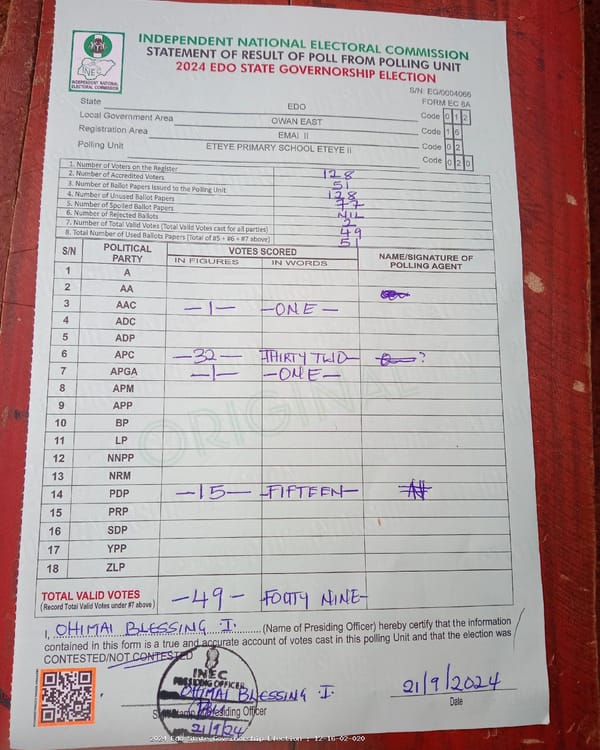 INDEPENDENT NATIONAL ELECTORAL COMMISSION
STATEMENT OF RESULT OF POLL FROM POLLING UNIT
2024 EDO STATE GOVERNORSHIP ELECTION
INEC
INDEPENDENT NATIONAL ELECTORAL COMMISSION
S/N: EG/0004066
FORM EC 8A
State EDO Code 0 1 2
Local Government Area OWAN EAST Code 1 6
Registration Area EMAI II Code 0 2
Polling Unit ETEYE PRIMARY SCHOOL ETEYE II Code 0 2 0
1. Number of Voters on the Register 128
2. Number of Accredited Voters 51
3. Number of Ballot Papers Issued to the Polling Unit 128
4. Number of Unused Ballot Papers 77
5. Number of Spoiled Ballot Papers NIL
6. Number of Rejected Ballots 2
7. Number of Total Valid Votes (Total Valid Votes cast for all parties) 49
8. Total Number of Used Ballots Papers (Total of #5 + #6 + #7 above) 51
S/N POLITICAL PARTY VOTES SCORED NAME/SIGNATURE OF POLLING AGENT
IN FIGURES IN WORDS
1 A
2 AA
3 AAC -1- -ONE-
4 ADC
5 ADP
6 APC -32- THIRTY TWO- ?
7 APGA -1- -ONE-
8 APM
9 APP
10 BP
11 LP
12 NNPP
13 NRM
14 PDP -15- -FIFTEEN-
15 PRP
16 SDP
17 YPP
18 ZLP
ORIGINAL
TOTAL VALID VOTES -49- FOUTY NINE-
(Record Total Valid Votes under #7 above)
I, OHIMAI BLESSING I. (Name of Presiding Officer) hereby certify that the information
contained in this form is a true and accurate account of votes cast in this polling Unit and that the election was
CONTESTED/NOT CONTESTED
INEC
PRESIDING OFFICER
OHIMAI BLESSING .I. 21/9/2024
Presiding Officer Date
21/9/24
2024 Edo State Governorship Election : 12-16-02-020